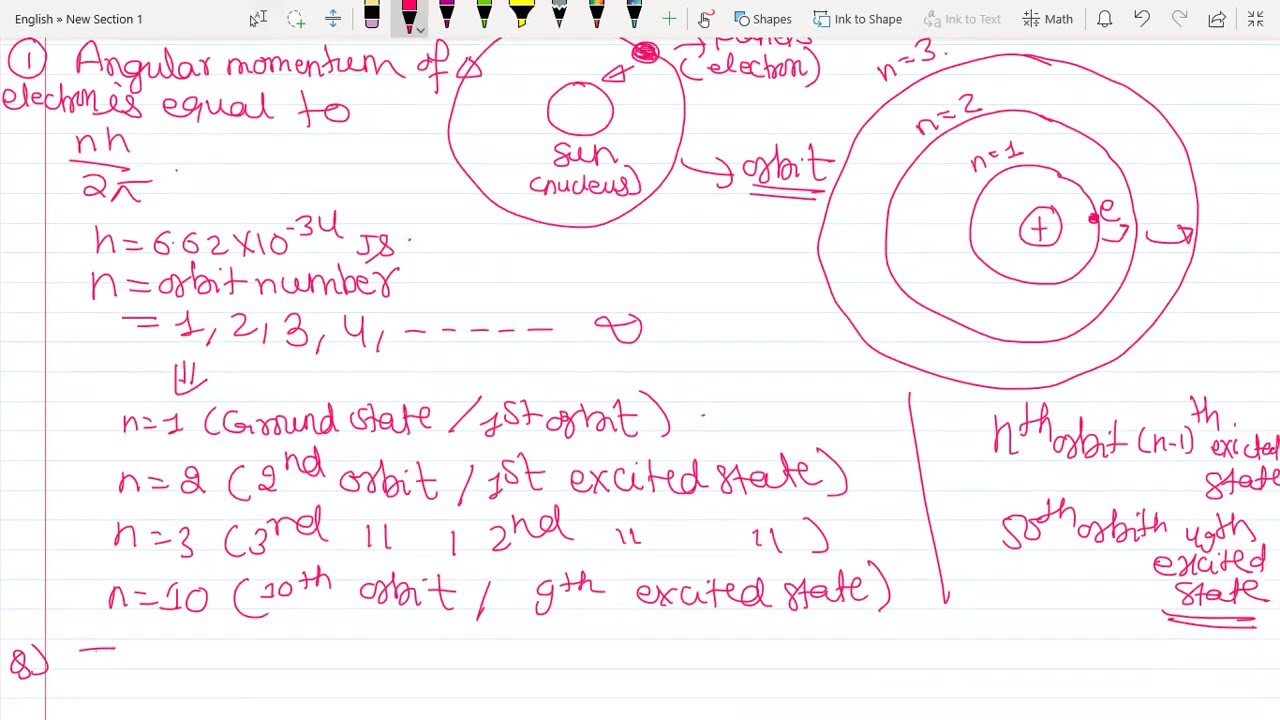 English » New Section 1
Shapes
Ink to Shape
Ink to Text
Math
① Angular momentum of
electron is equal to
nh
2π
h = 6.62×10^-34 Js.
n = orbit number
= 1, 2, 3, 4, ----- ∞
n=1 (Ground state / 1st orbit)
n=2 (2nd orbit / 1st excited state)
n=3 (3rd 11 / 2nd 11 11)
n=10 (10th orbit / 9th excited state)
Q)
(electron)
Sun
(nucleus)
→ orbit
n=3
n=2
n=1
e
+
nth orbit (n-1)th excited
state
50th orbit 49th
excited
state